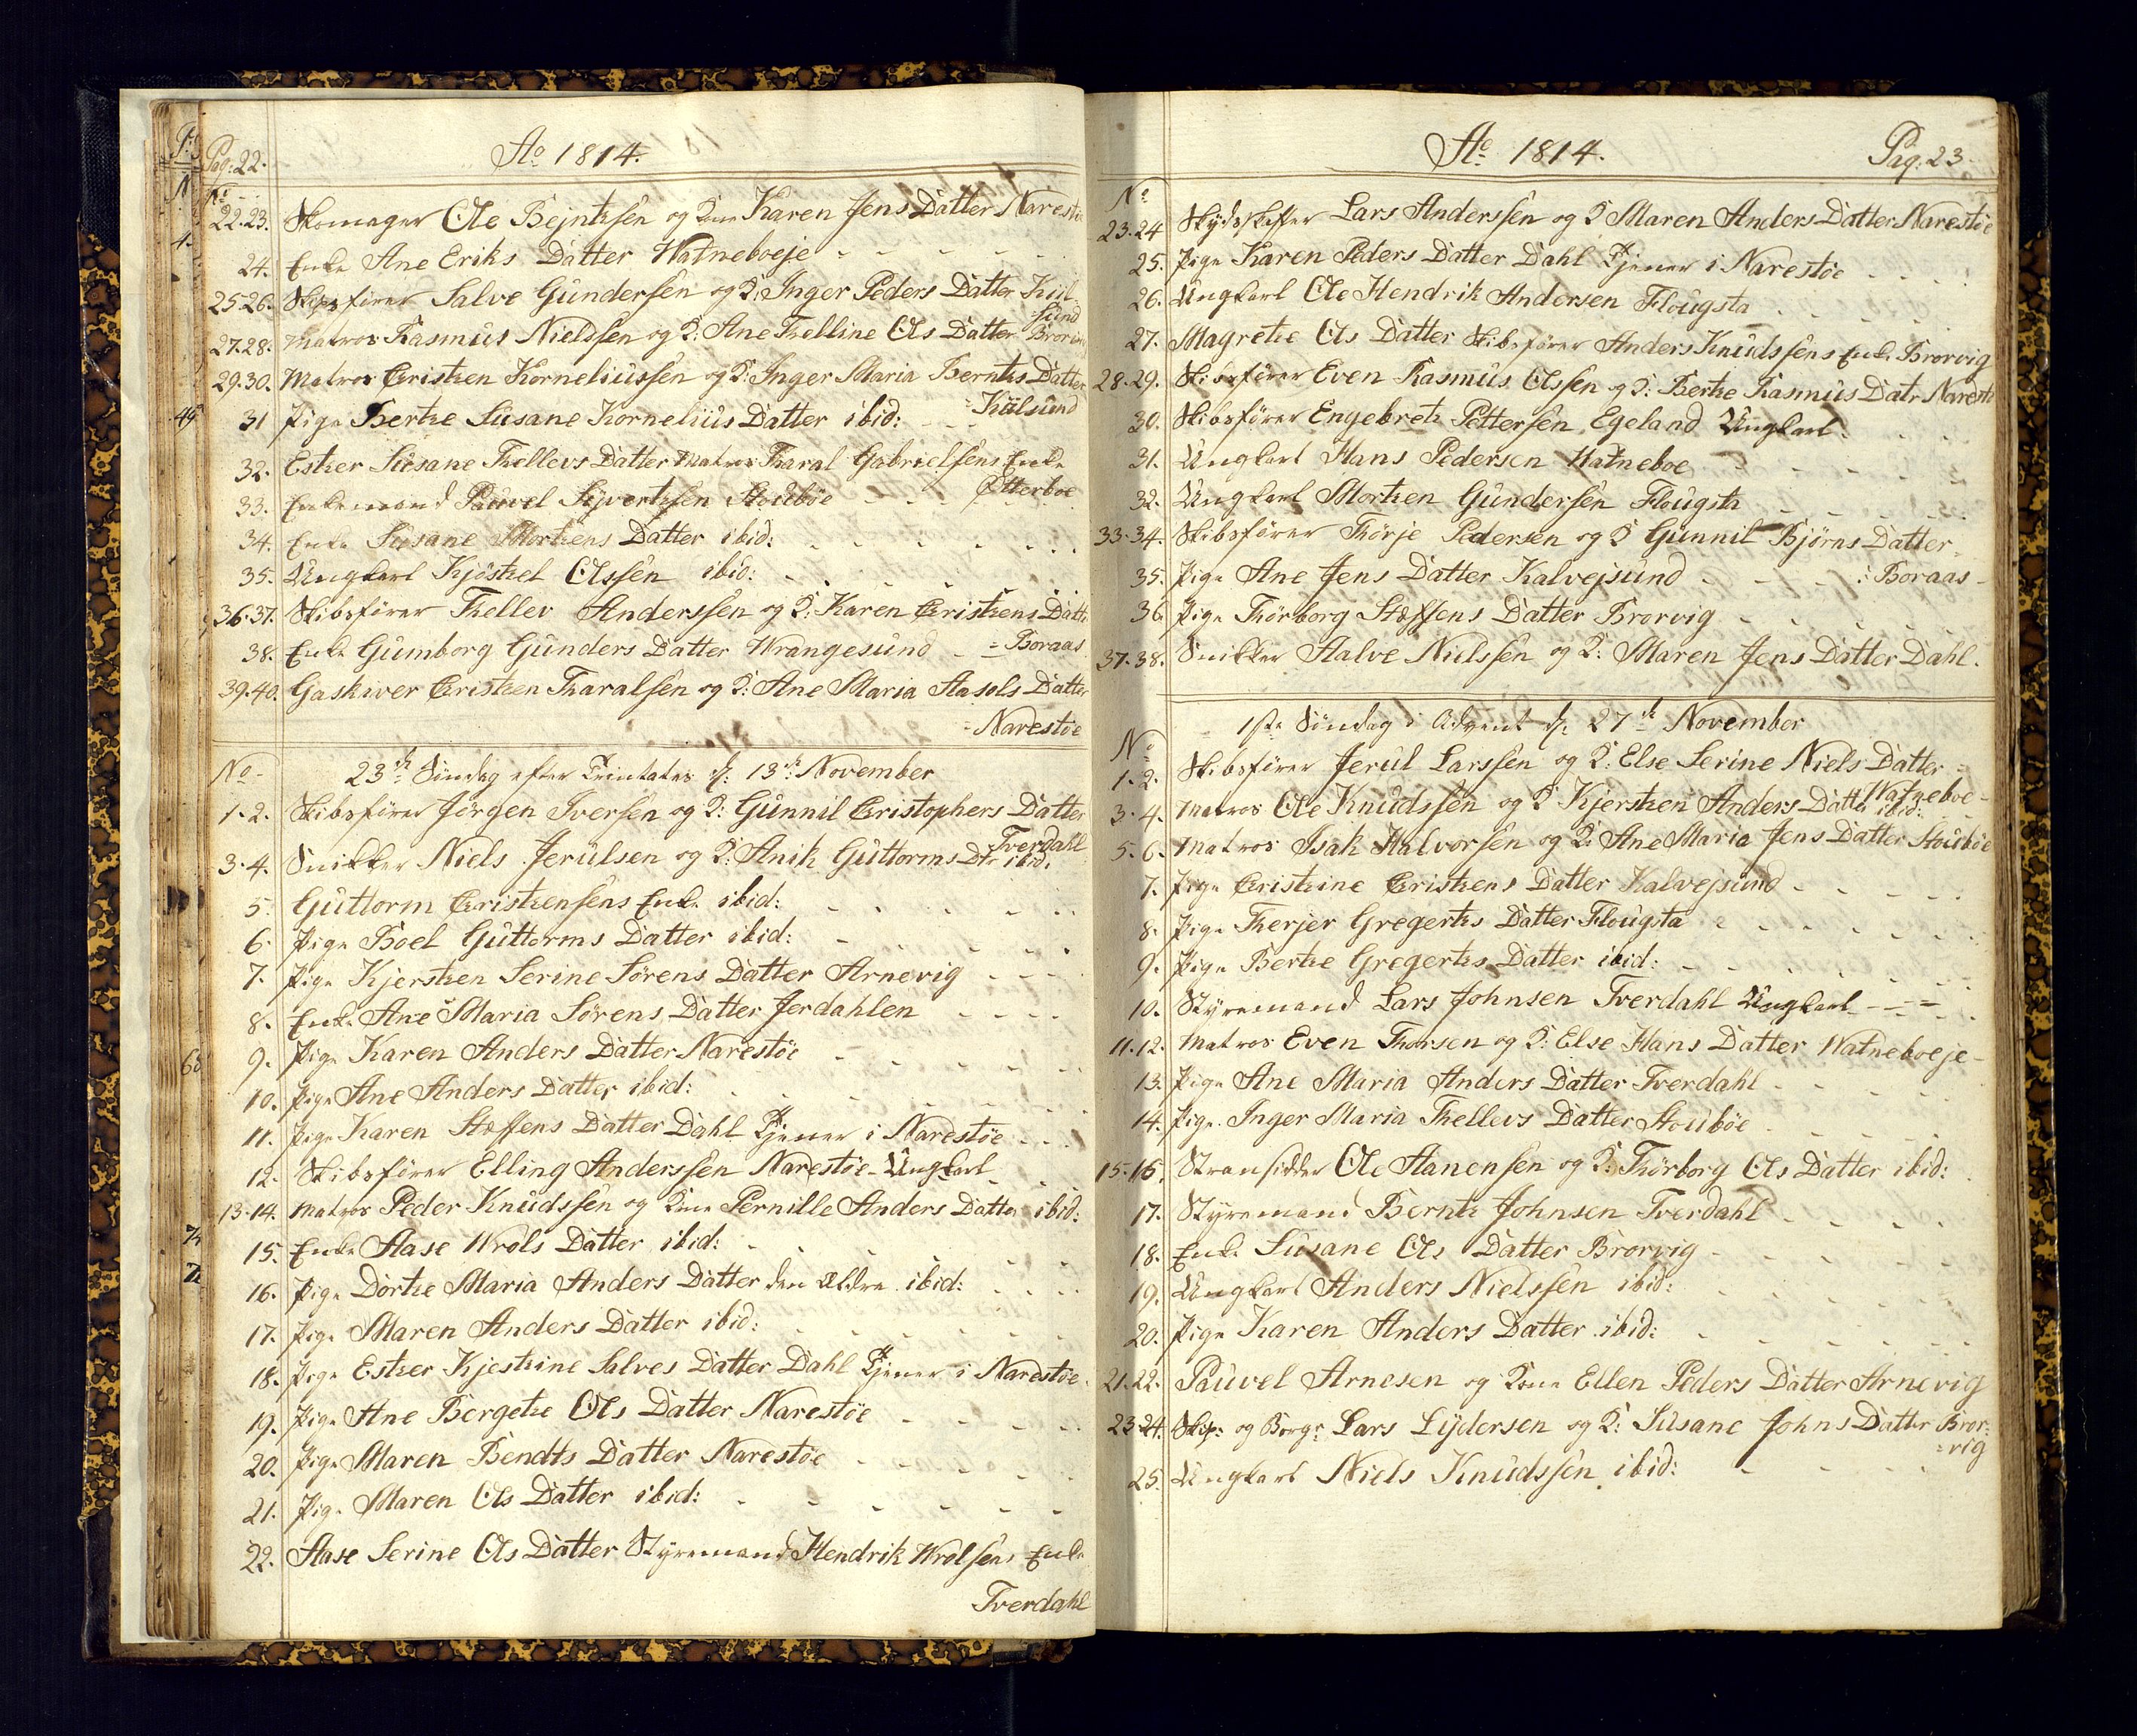 Pag: 22.
Ao 1814.
No
22.23. Skomager Ole Bejnthsen og Kone Karen Jens Datter Narestøe
24. Enke Ane Eriks Datter Watneboeje
25.26. Skipsfører Salve Gundersen og K: Inger Peders Datter Kiil=
sund
27.28. Matros Rasmus Nielssen og K: Ane Thelline Ols Datter Brorvig
29.30. Matros Christhen Korneliussen og K: Inger Maria Bernths Datter
=Kiilsund
31 Pige Berthe Susane Kornelius Datter ibid:
32. Esther Susane Thellevs Datter Matros Tharal Gabrielsens Enke
Otterboe
33. Enkemand Pauvel Syverthsen Stoubøe
34. Enke Susane Morthens Datter ibid:
35. Ungkarl Kjøsthel Olssen ibid:
36.37. Skibsfører Thellev Anderssen og K: Karen Christhens Datter
=Boraas
38. Enke Gumborg Gunders Datter Wrangesund
39.40. Gaskiver Christhen Tharalsen og K: Ane Maria Aasols Datter
=Narestøe
No 23de Søndag efter Trinitates d: 13de November
1.2. Skibsfører Jørgen Iversen og K: Gunnil Christophers Datter
Tverdahl
3.4. Snikker Niels Jerulsen og K: Anih Guttorms Dtr ibid:
5. Guttorm Christhensens Enke ibid:
6. Pige Boel Guttorms Datter ibid:
7. Pige Kjersthen Serine Sørens Datter Arnevig
8. Enke Ane Maria Sørens Datter Jerdahlen
9. Pige Karen Anders Datter Narestøe
10. Pige Ane Anders Datter ibid:
11. Pige Karen Stæffens Datter Dahl Tjener i Narestøe
12. Skibsfører Elling Anderssen Narestøe Ungkarl
13.14. Matros Peder Knudssen og Kone Pernille Anders Datter ibid:
15. Enke Aase Wrols Datter ibid:
16. Pige Dorthe Maria Anders Datter den Ældre ibid:
17. Pige Maren Anders Datter ibid:
18. Pige Esther Kjesthine Salves Datter Dahl Tjener i Narestøe
19. Pige Ane Bergethe Ols Datter Narestøe
20. Pige Maren Bendts Datter Narestøe
21. Pige Maren Ols Datter ibid:
22. Aase Serine Ols Datter Styremand Hendrik Wrolsens Enke
Tverdahl
Ao 1814.
Pag. 23
No
23.24 Skydsskaffer Lars Anderssen og K Maren Anders Datter Narestøe
25. Pige Karen Peders Datter Dahl Tjener i Narestøe
26. Ungkarl Ole Hendrik Andersen Flougsta
27. Magrethe Ols Datter Skibsfører Anders Knudssens Enke Brorvig
28.29. Skibsfører Even Rasmus Olssen og K: Berthe Rasmus Datr Narestøe
30. Skibsfører Engebreth Pettersen Egeland Ungkarl
31. Ungkarl Hans Pedersen Watneboe
32. Ungkarl Morthen Gundersen Flougsta
33.34. Skibsfører Thørje Pedersen og K Gunnil Bjørns Datter
35. Pige Ane Jens Datter Kalvejsund : Boraas
36 Pige Thørborg Stæffens Datter Brorvig
37.38. Snikker Aalve Nielssen og K: Maren Jens Datter Dahl.
1ste Søndag i Advent d: 27de November
No
1.2. Skibsfører Jerul Larssen og K: Else Serine Niels Datter=
Watneboe
3.4. Matros Ole Knudssen og K Kjersthen Anders Datter ibid:
5.6. Matros Isak Halvorsen og K: Ane Maria Jens Datter Stoubøe
7. Pige Christhine Christhens Datter Kalvejsund
8. Pige Therjer Gregerths Datter Flougsta
9. Pige Berthe Gregerths Datter ibid:
10. Styremand Lars Johnsen Tverdahl Ungkarl
11.12. Matros Even Thorsen og K: Else Hans Datter Watneboeje
13. Pige Ane Maria Anders Datter Tverdahl
14. Pige Inger Maria Thellevs Datter Stoubøe
15.16. Stransidder Ole Aanensen og K: Thørborg Ols Datter ibid:
17. Styremand Bernth Johnsen Tverdahl
18. Enke Susane Ols Datter Brorvig
19. Ungkarl Anders Nielssen ibid:
20. Pige Karen Anders Datter ibid:
21.22. Pauvel Arnesen og Kone Ellen Peders Datter Arnevig
23.24. Skip: og Borgr Lars Lydersen og K: Susane Johns Datter Bror:
=vig
25. Ungkarl Niels Knudssen ibid: